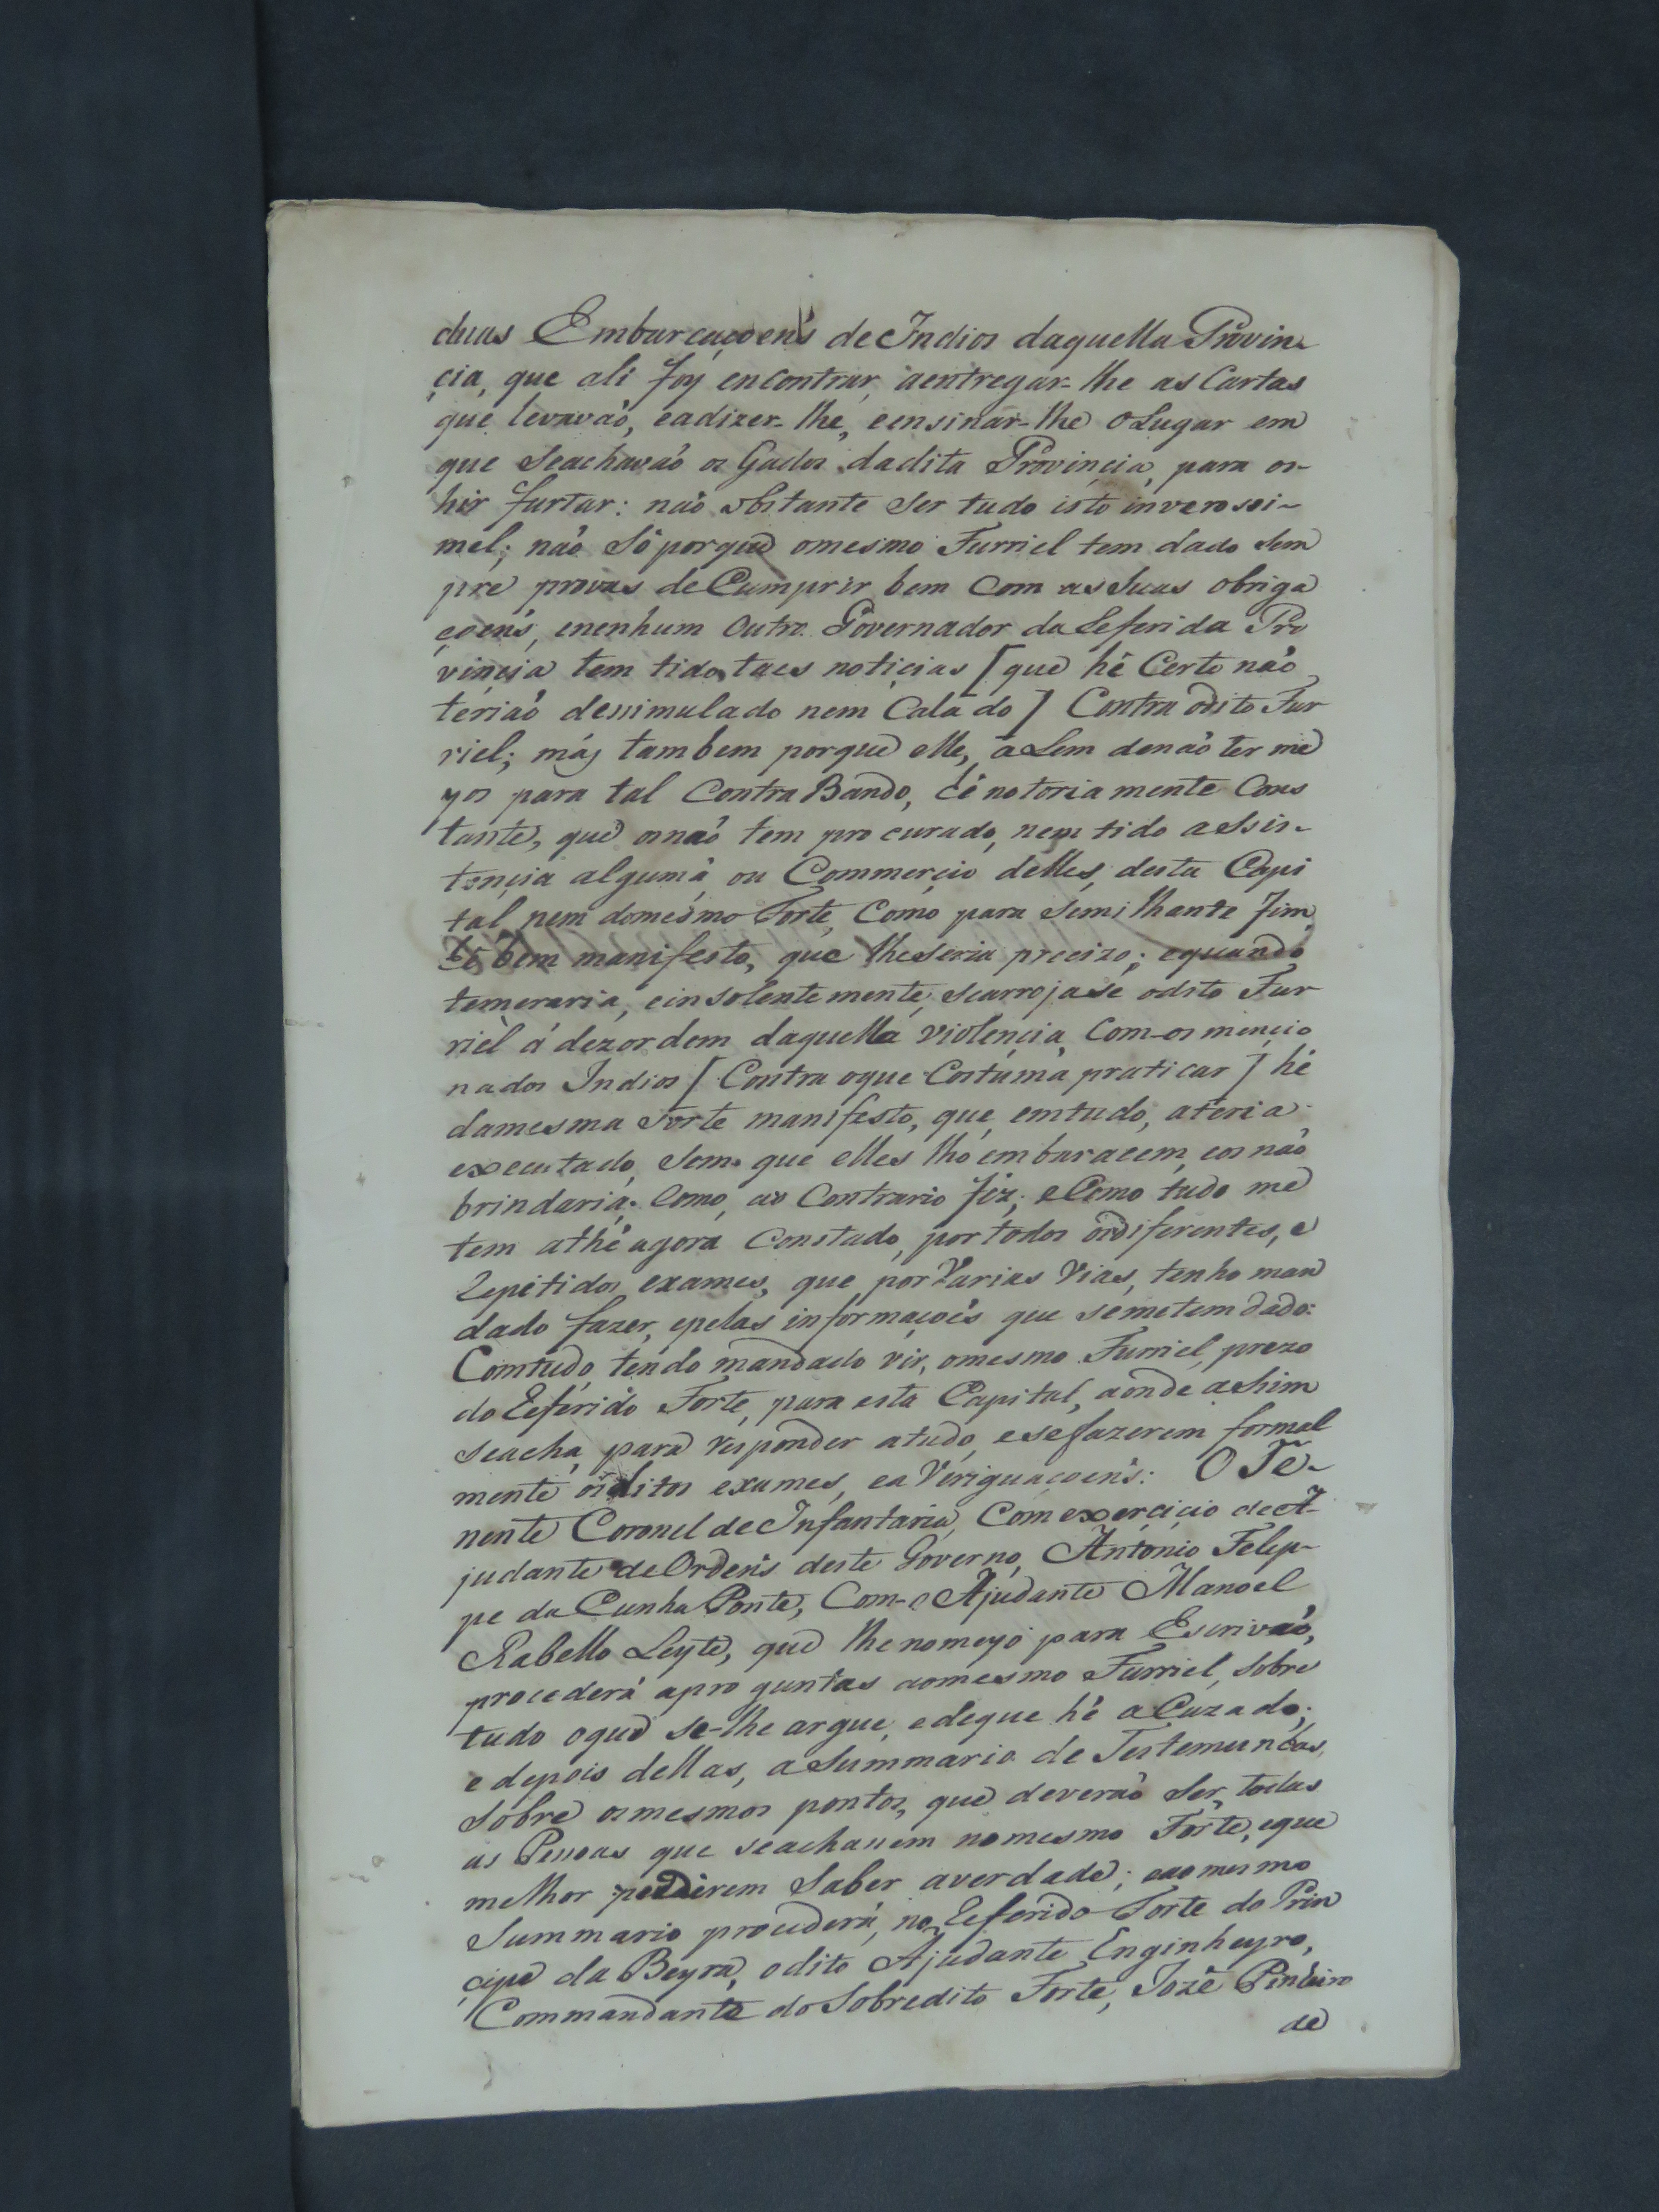 duas Embarcaçoens de Indios daquella Provin-
cia, que ali foy encontrar, aentregar-lhe as Cartas
que levavaõ, eadizer-lhe, eensinar-lhe oLugar em
que Seachavaõ os Gados dadita Provincia, para os-
hir furtar: naõ obstante ser tudo isto inverosi-
mel; naõ Sô porque omesmo Furriel tem dado Sem
pre provas de Cumprir bem Com as Suas obriga
çoens, enenhum Outro Governador da Referida Pro
vincia tem tido taes noticias [ que hê Certo naõ
teriaõ dessimulado nem Calado ] Contra odito Fur
riel; más tambem porque elle, àLem denaõ ter me
yos para tal ContraBando, hê notoriamente Cons
tante, que osnaõ tem procurado, nem tido assis-
tencia alguma, ou Commercio delles, desta Capi
tal nem domesmo Forte, Como para Similhante fim,
hê bem manifesto, que lheSeria precizo; equando
temeraria, einsolentemente, Searrojase odito Fur
riel á dezordem daquella violencia, Com-os mencio
nados Indios [ Contra oque Costuma praticar ] hê
damesma Sorte manifesto, que, emtudo, ateria
executado, Sem que elles lho embaracem, eos naõ
brindaria. Como, ao Contrario fez; eComo tudo me
tem athé agora Constado, portodos osdiferentes, e
Repetidos exames, que por Varias Vias, tenho man
dado fazer, epelas informaçoẽs que semetem dado:
Comtudo, tendo mandado vir, omesmo Furriel, prezo
do Referido Forte, para esta Capital, aonde assim
seacha, para responder atudo, esefazerem formal
mente os ditos exames, eaVeriguaçoens: O Te-
nente Coronel de Infantaria, Com exercicio de A-
judante de Ordens deste Governo, Antonio Felep-
pe da Cunha Ponte, Com-o Ajudante Manoel
Rabello Leyte, que lhenomeyo para Escrivaõ,
procederá apreguntas aomesmo Furriel, Sobre
tudo oque se-lhe argue, edeque hê aCuzado;
e depois dellas, aSummario de Testemunhas,
Sobre osmesmos pontos, que deveraõ Ser, todas
as Pessoas que seachassem nomesmo Forte, eque
melhor poderem Saber averdade; eaomesmo
Summario procederá, no Referido Forte do Prin
cipe da Beyra, odito Ajudante Enginheyro,
Commandante do Sobredito Forte, Jozê Pinheiro
de